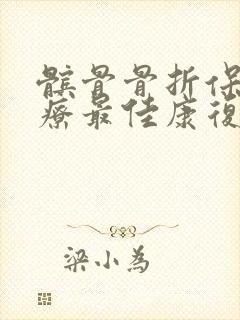 髌骨骨折保
療最佳康復
梁小為